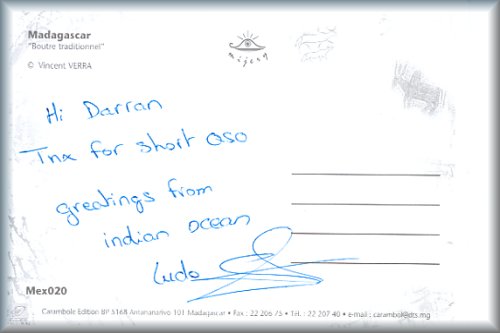 Madagascar
"Boutre traditionnel"
© Vincent VERRA
mijery
Hi Darran
Tnx for short QSO
greetings from
indian ocean
Ludo
Mex020
Carambole Edition BP 5168 Antananarivo 101 Madagascar • Fax : 22 206 75 • Tél. : 22 207 40 • e-mail : carambol@dts.mg